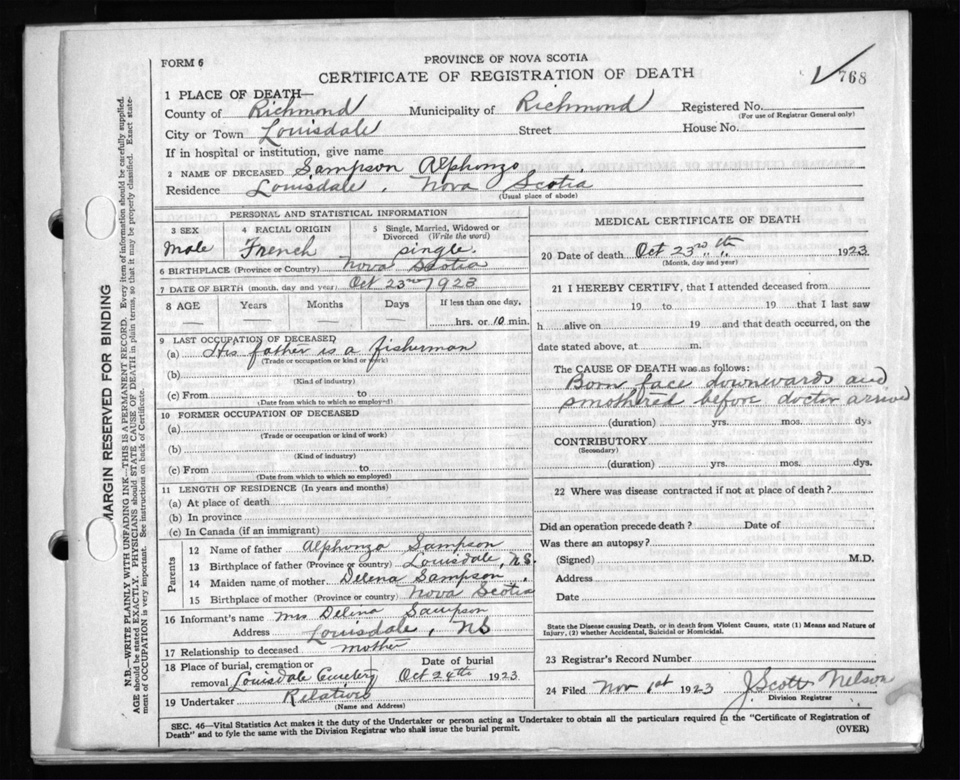 FORM 6
PROVINCE OF NOVA SCOTIA
CERTIFICATE OF REGISTRATION OF DEATH
768
1 PLACE OF DEATH—
County of Richmond Municipality of Richmond Registered No.
(For use of Registrar General only)
City or Town Louisdale Street House No.
If in hospital or institution, give name
2 NAME OF DECEASED Sampson Alphonzo
Residence Louisdale, Nova Scotia
(Usual place of abode)
PERSONAL AND STATISTICAL INFORMATION
3 SEX 4 RACIAL ORIGIN 5 Single, Married, Widowed or Divorced (Write the word)
Male French single.
6 BIRTHPLACE (Province or Country) Nova Scotia
7 DATE OF BIRTH (month, day and year) Oct 23rd 1923
8 AGE Years Months Days If less than one day,
— — — hrs. or 10 min.
9 LAST OCCUPATION OF DECEASED
(a) His father is a fisherman
(Trade or occupation or kind of work)
(b)
(Kind of industry)
(c) From to
(Date from which to which so employed)
10 FORMER OCCUPATION OF DECEASED
(a)
(Trade or occupation or kind of work)
(b)
(Kind of industry)
(c) From to
(Date from which to which so employed)
11 LENGTH OF RESIDENCE (In years and months)
(a) At place of death
(b) In province
(c) In Canada (if an immigrant)
Parents
12 Name of father Alphonzo Sampson
13 Birthplace of father (Province or country) Louisdale, N.S.
14 Maiden name of mother Delena Sampson.
15 Birthplace of mother (Province or country) Nova Scotia
16 Informant's name Mrs Delina Sampson
Address Louisdale, NS
17 Relationship to deceased mother
18 Place of burial, cremation or Date of burial
removal Louisdale Cemetery Oct 24th 1923.
19 Undertaker Relatives
(Name and Address)
MEDICAL CERTIFICATE OF DEATH
20 Date of death Oct 23rd th 1923
(Month, day and year)
21 I HEREBY CERTIFY, that I attended deceased from
19 to 19 that I last saw
h alive on 19 and that death occurred, on the
date stated above, at m.
The CAUSE OF DEATH was as follows:
Born face downwards and
smothered before doctor arrived
(duration) yrs. mos. dys
CONTRIBUTORY
(Secondary)
(duration) yrs. mos. dys.
22 Where was disease contracted if not at place of death?
Did an operation precede death? Date of
Was there an autopsy?
(Signed) M.D.
Address
Date
State the Disease causing Death, or in death from Violent Causes, state (1) Means and Nature of
Injury, (2) whether Accidental, Suicidal or Homicidal.
23 Registrar's Record Number
24 Filed Nov 1st 1923 J Scott Nelson
Division Registrar
SEC. 46—Vital Statistics Act makes it the duty of the Undertaker or person acting as Undertaker to obtain all the particulars required in the "Certificate of Registration of
Death" and to fyle the same with the Division Registrar who shall issue the burial permit.
(OVER)
MARGIN RESERVED FOR BINDING
N.B.—WRITE PLAINLY WITH UNFADING INK—THIS IS A PERMANENT RECORD. Every item of information should be carefully supplied.
AGE should be stated EXACTLY. PHYSICIANS should STATE CAUSE OF DEATH in plain terms, so that it may be properly classified. Exact state-
ment of OCCUPATION is very important. See instructions on back of Certificate.